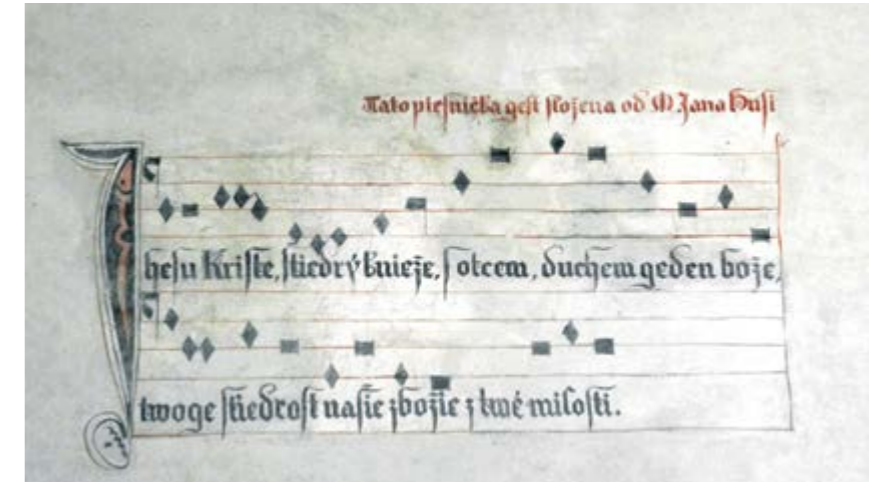 Tato piesnička gest složena od M Jana Husi
Ihesu Kriste, sstiedrý knieže, s otcem, duchem geden bože,
twoge sstiedrost nassie zbožie z twé milosti.